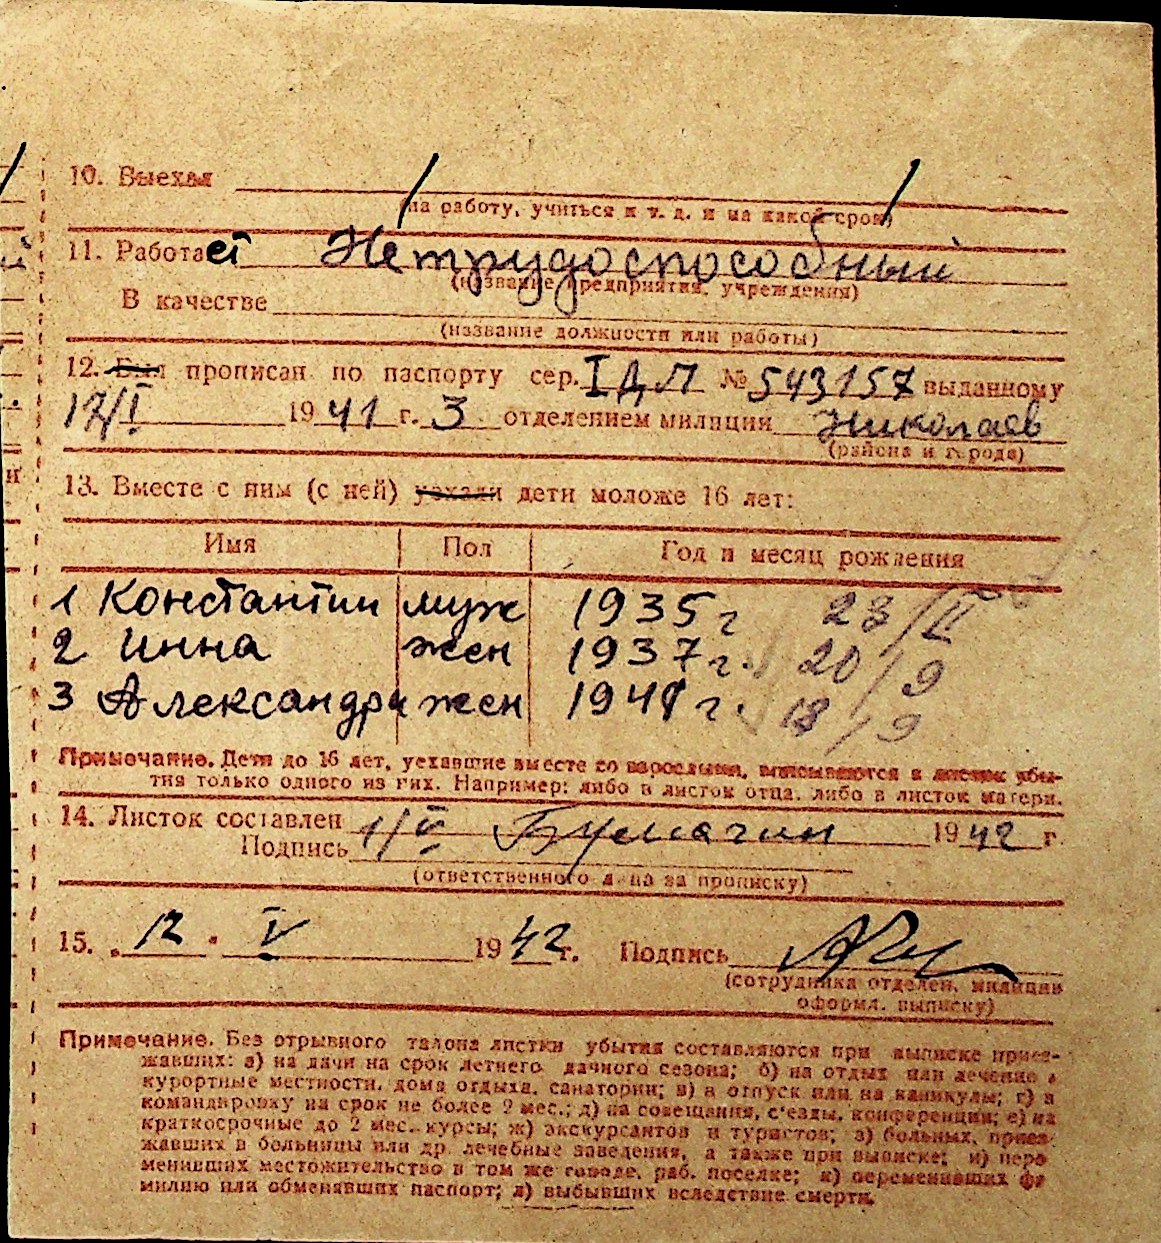 10. Выехал
(на работу, учиться и т. д. и на какой срок)
11. Работает Нетрудоспособный
(название предприятия, учреждения)
В качестве
(название должности или работы)
12. Был прописан по паспорту сер. I ДЛ № 543157 выданному
17/I 1941 г. 3 отделением милиции Николаев
(района и города)
13. Вместе с ним (с ней) уехали дети моложе 16 лет:
Имя Пол Год и месяц рождения
1 Константин муж 1935 г 23/II
2 Инна жен 1937 г. 20/9
3 Александра жен 1941 г. 18/9
Примечание. Дети до 16 лет, уехавшие вместе со взрослыми, вписываются в листок убы-
тия только одного из них. Например: либо в листок отца, либо в листок матери.
14. Листок составлен 1/V Бумагин 1942 г
Подпись
(ответственного лица за прописку)
15. „12" V 1942 г. Подпись
(сотрудника отделен. милиции
оформл. выписку)
Примечание. Без отрывного талона листки убытия составляются при выписке приез-
жавших: а) на дачи на срок летнего дачного сезона; б) на отдых или лечение в
курортные местности, дома отдыха, санатории; в) в отпуск или на каникулы; г) в
командировку на срок не более 2 мес.; д) на совещания, с'езды, конференции; е) на
краткосрочные до 2 мес. курсы; ж) экскурсантов и туристов; з) больных, приез-
жавших в больницы или др. лечебные заведения, а также при выписке; и) пере
менивших местожительство в том же городе, раб. поселке; к) переменивших фа
милию или обменявших паспорт; л) выбывших вследствие смерти.